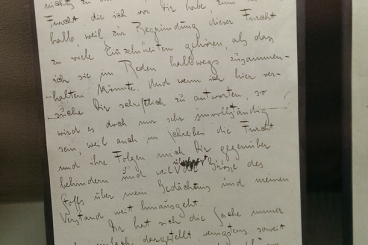 nichts zu
Furcht die ich vor Dir habe, zum
halb, weil zur Begründung dieser Furcht
zu viele Einzelheiten gehören, als dass
ich sie im Reden halbwegs zusammen-
halten könnte. Und wenn ich hier ver-
suche Dir schriftlich zu antworten, so
wird es doch nur sehr unvollständig
sein, weil auch im Schreiben die Furcht
und ihre Folgen mich Dir gegenüber
behindern und weil die Grösse des
Stoffs über mein Gedächtnis und meinen
Verstand weit hinausgeht.
Dir hat sich die Sache immer
dargestellt, wenigstens soweit